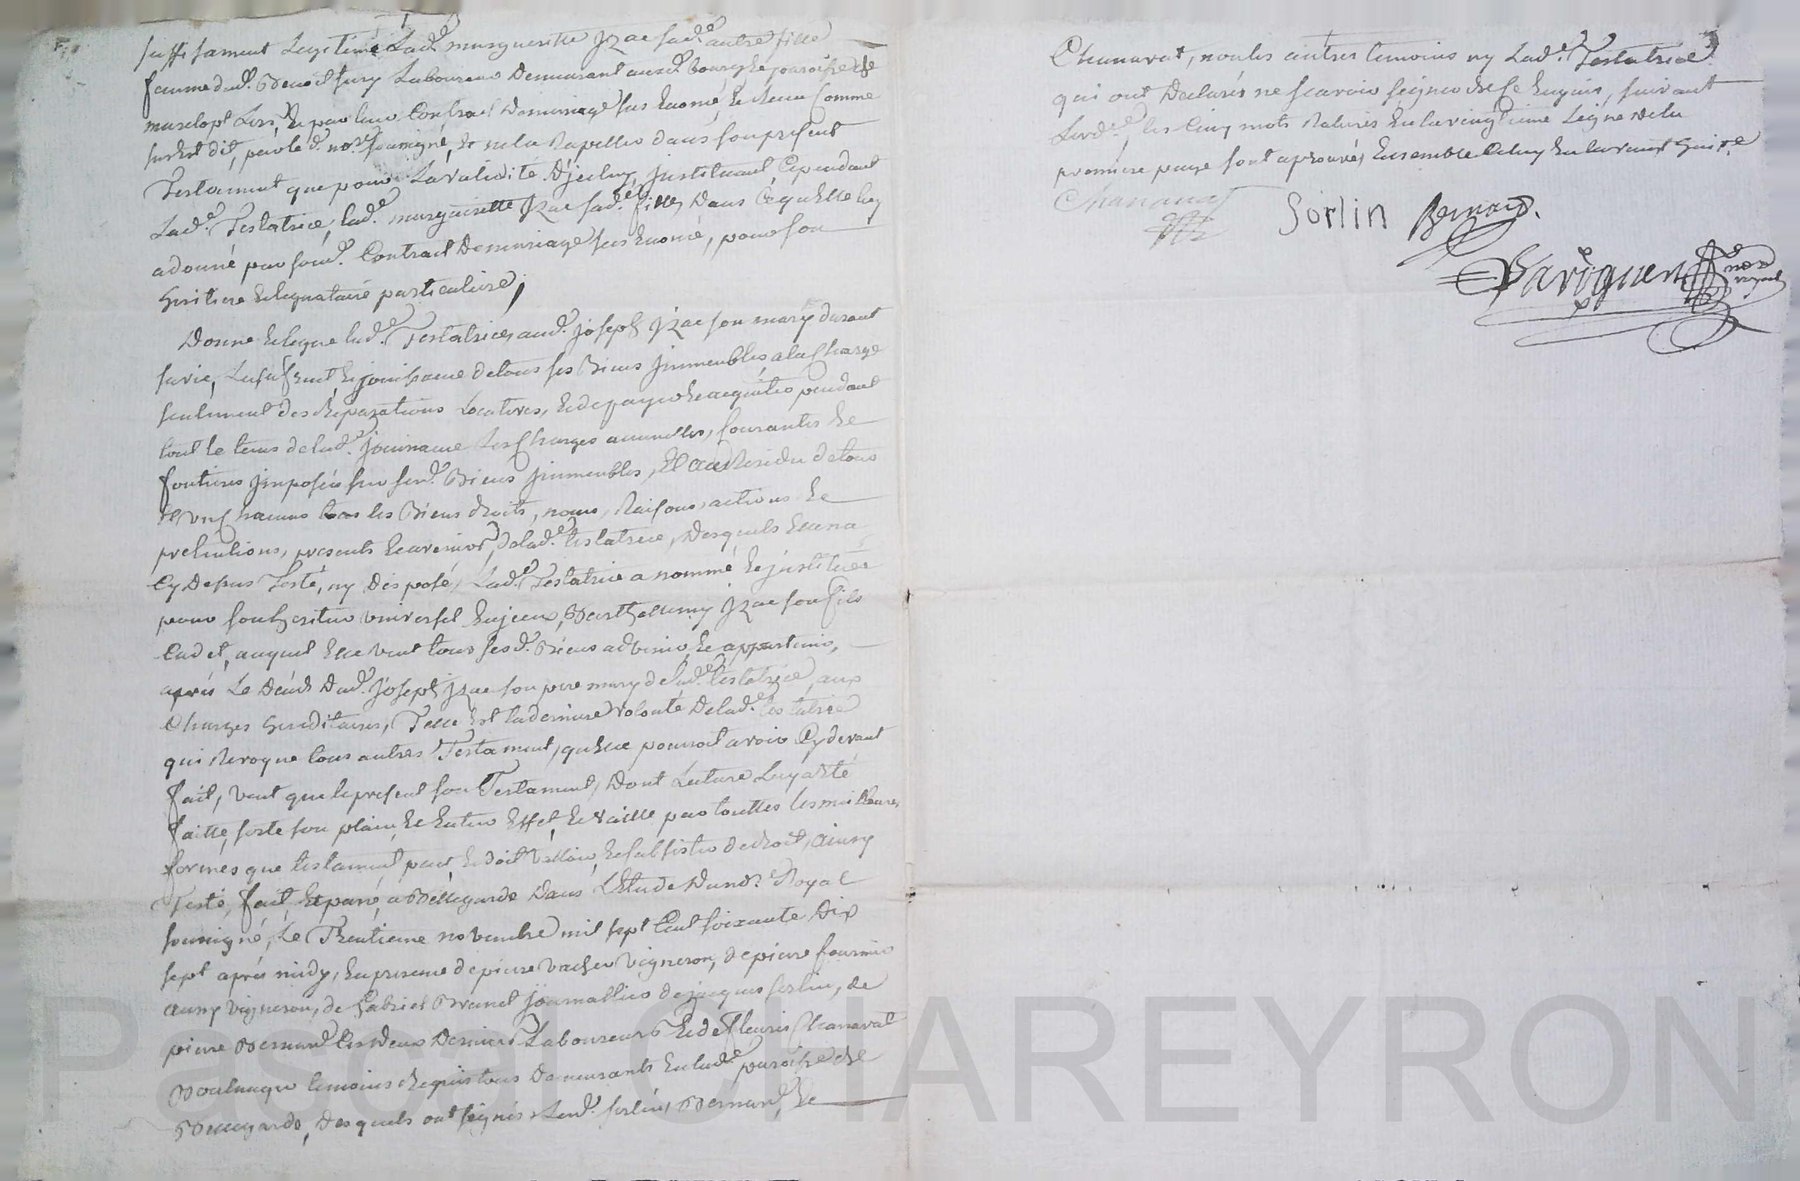 suffisament Legitimé Lad.e margueritte Jzac sad.e autre fille
femme dud. Benoit fury Laboureur Demeurant aud. bourg & paroisse de
par leur Contract De mariage sus Enoncé, & Receu Comme
sus Est dit, par le d. no.re soussigné, & ne la Rapeller dans son present
Testament que pour La validité D'jceluy, justituant Cependant
Lad.e Testatrice, lad.e margueritte Jzac sad.e fille, Dans Ce qu'elle luy
a donné par sond. Contract De mariage sus Enoncé, pour son
heritiere & legnataire particuliere,
Donne & legue lad.e Testatrice, aud. joseph Jzac son mary durant
sa vie, Lusufruit, & jouissance de tous ses Biens jmmeubles, a la Charge
seulement des Reparations Locatives, & de payer & acquiter pendant
tout le tems de lad.e jouissance Les Charges annuelles, Courantes &
fontieres jmposées sur send. Biens jmmeubles, Et au Residu de tous
& Un Chacuns tous les Biens droits, noms, Raisons, actions &
pretentions, presents & avenir, de lad.e testatrice, Desquels Elle na
Cy Dessus Testé, ny Disposé, Lad.e Testatrice a nommé & justitué
pour son heritier universel Barthelemy Jzac son fils
Cadet, auquel Elle veut tous ses d. Biens advenir, & appartenir,
après Le Décès Dud. joseph jzac son pere mary de Lad.e testatrice, aux
Charges hereditaires, Telle Est la derniere volonté De lad.e testatrice
qui Revoque tous autres Testament, quelle pourroit avoir Cy devant
fait, veut que le present son Testament, Dont Lecture Luy a Eté
faitte, sorte son plain, & Entier Effet, & vaille par touttes les meilleures
formes que testament peut, & doit valloir, & subsister de droit, ainsy
Testé, fait, & passé, à Bellegarde Dans L'Etude Dud. no.re Royal
soussigné, Le Trentieme novembre mil sept Cent soixante Dix
sept après midy, En presence de pierre vacher vigneron, de pierre fournier
aussy vigneron, de gabriel Brunet journallier de jacques sorlin, de
pierre Bernard Les Deux Derniers Laboureurs & de fleury Chanavat
Boulanger temoins Requis tous Demeurants En lad.e paroisse de
Bellegarde, Desquels ont signés Lesd. sorlin, Bernard, &
Chanavat, non les autres temoins ny Lad.e Testatrice
qui ont Declarés ne scavoir signer de ce Enquis, suivant
Lord.ce, les Cinq mots Raturés En la vingtieme Ligne de la
premiere page sont aprouvés Ensemble Celuy En la
Chanavat
Sorlin Bernard.
no.re
royal
Pascal CHAREYRON